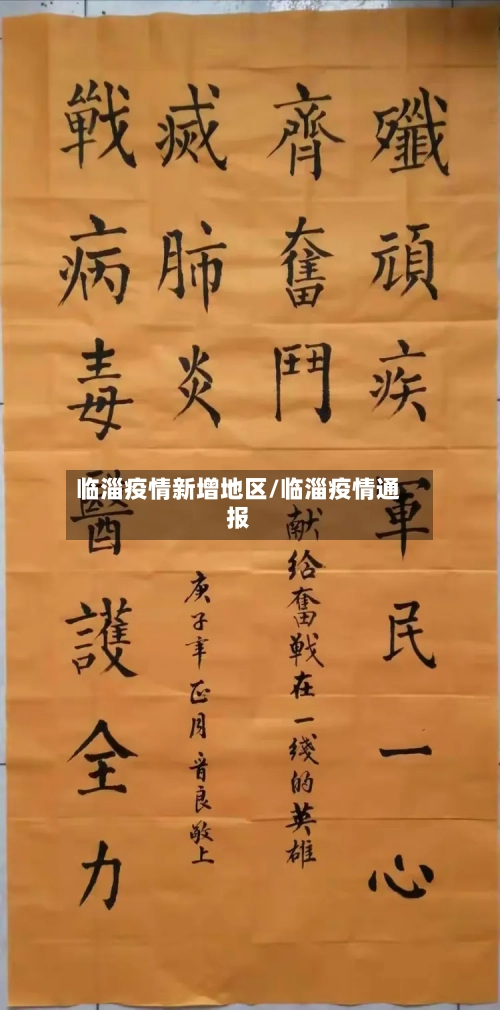 殲頑疾軍民一心
齊奮鬥
献给奮戰在一綫的英雄
戰病毒醫護全力
滅肺炎
庚子年正月晋良敬上
临淄疫情新增地区/临淄疫情通
报